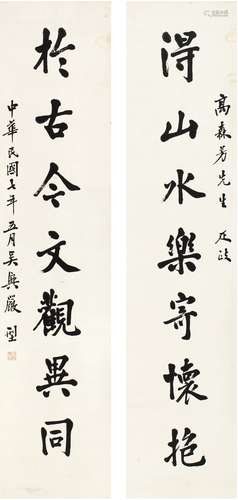 得山水樂寄懷抱
高森芳先生 廷政
於古今文觀異同
中華民國七年五月吳興嚴型